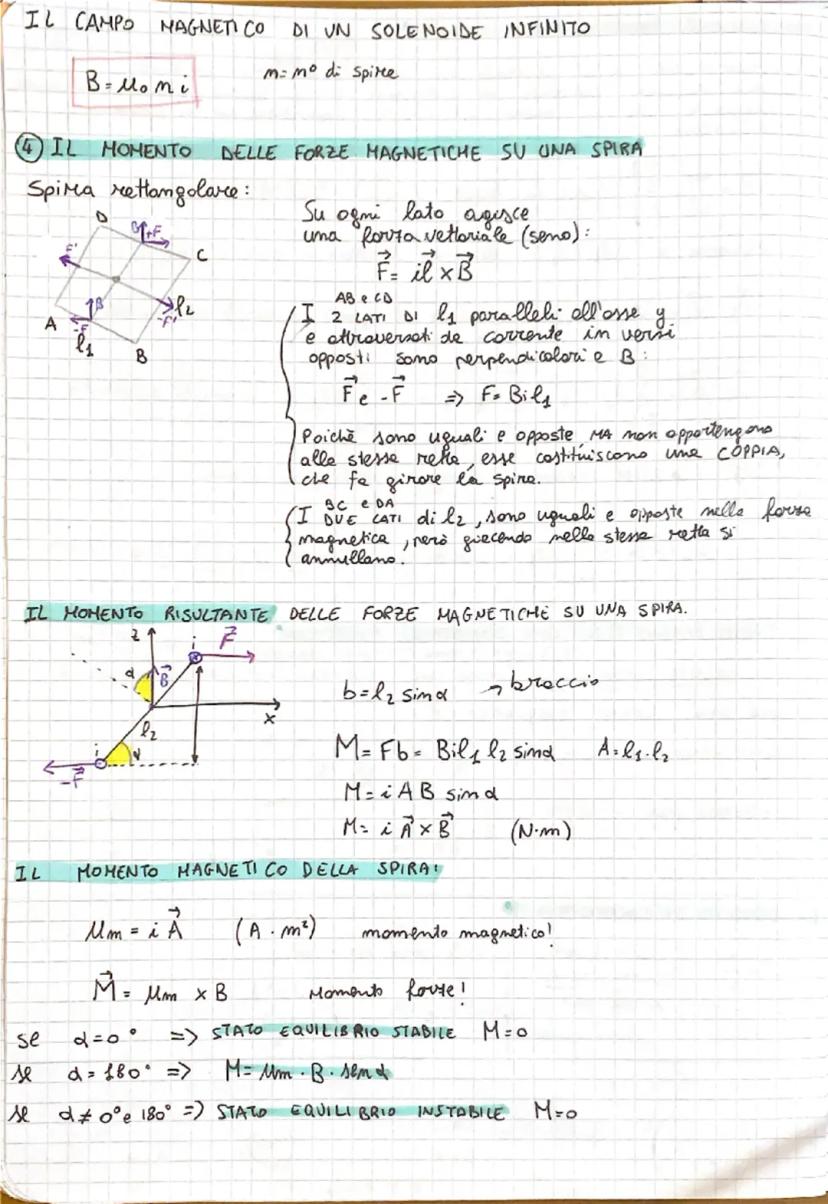 IL CAMPO MAGNETICO DI UN SOLENOIDE INFINITO
B = μ₀ n i
n = n° di spire
④ IL MOMENTO DELLE FORZE MAGNETICHE SU UNA SPIRA
Spira rettangolare:
D
B
+F
C
F'
B
l2
-F'
A
-F
l1
B
Su ogni lato agisce
una forza vettoriale (seno):
F⃗ = il⃗ × B⃗
AB e CD
I 2 LATI DI l1 paralleli all'asse y
e attraversati da corrente in versi
opposti sono perpendicolari a B:
F⃗ e -F⃗ => F = Bil1
Poichè sono uguali e opposte, MA non appartengono
alla stessa retta, esse costituiscono una COPPIA,
che fa girare la spira.
BC e DA
I DUE LATI di l2, sono uguali e opposte nella forza
magnetica, però giacendo nella stessa retta si
annullano.
IL MOMENTO RISULTANTE DELLE FORZE MAGNETICHE SU UNA SPIRA.
z
i
F⃗
α
B⃗
x
l2
i
α
-F⃗
b = l2 sinα → braccio
M = Fb = Bil1 l2 sinα A = l1·l2
M = i A B sinα
M = i A⃗ × B⃗ (N·m)
IL MOMENTO MAGNETICO DELLA SPIRA:
μm = i A⃗ (A · m²) momento magnetico!
M⃗ = μm × B Momento forze!
se α = 0° => STATO EQUILIBRIO STABILE M=0
se α = 180° => M = μm · B · senα
se α ≠ 0° e 180° => STATO EQUILIBRIO INSTABILE M=0